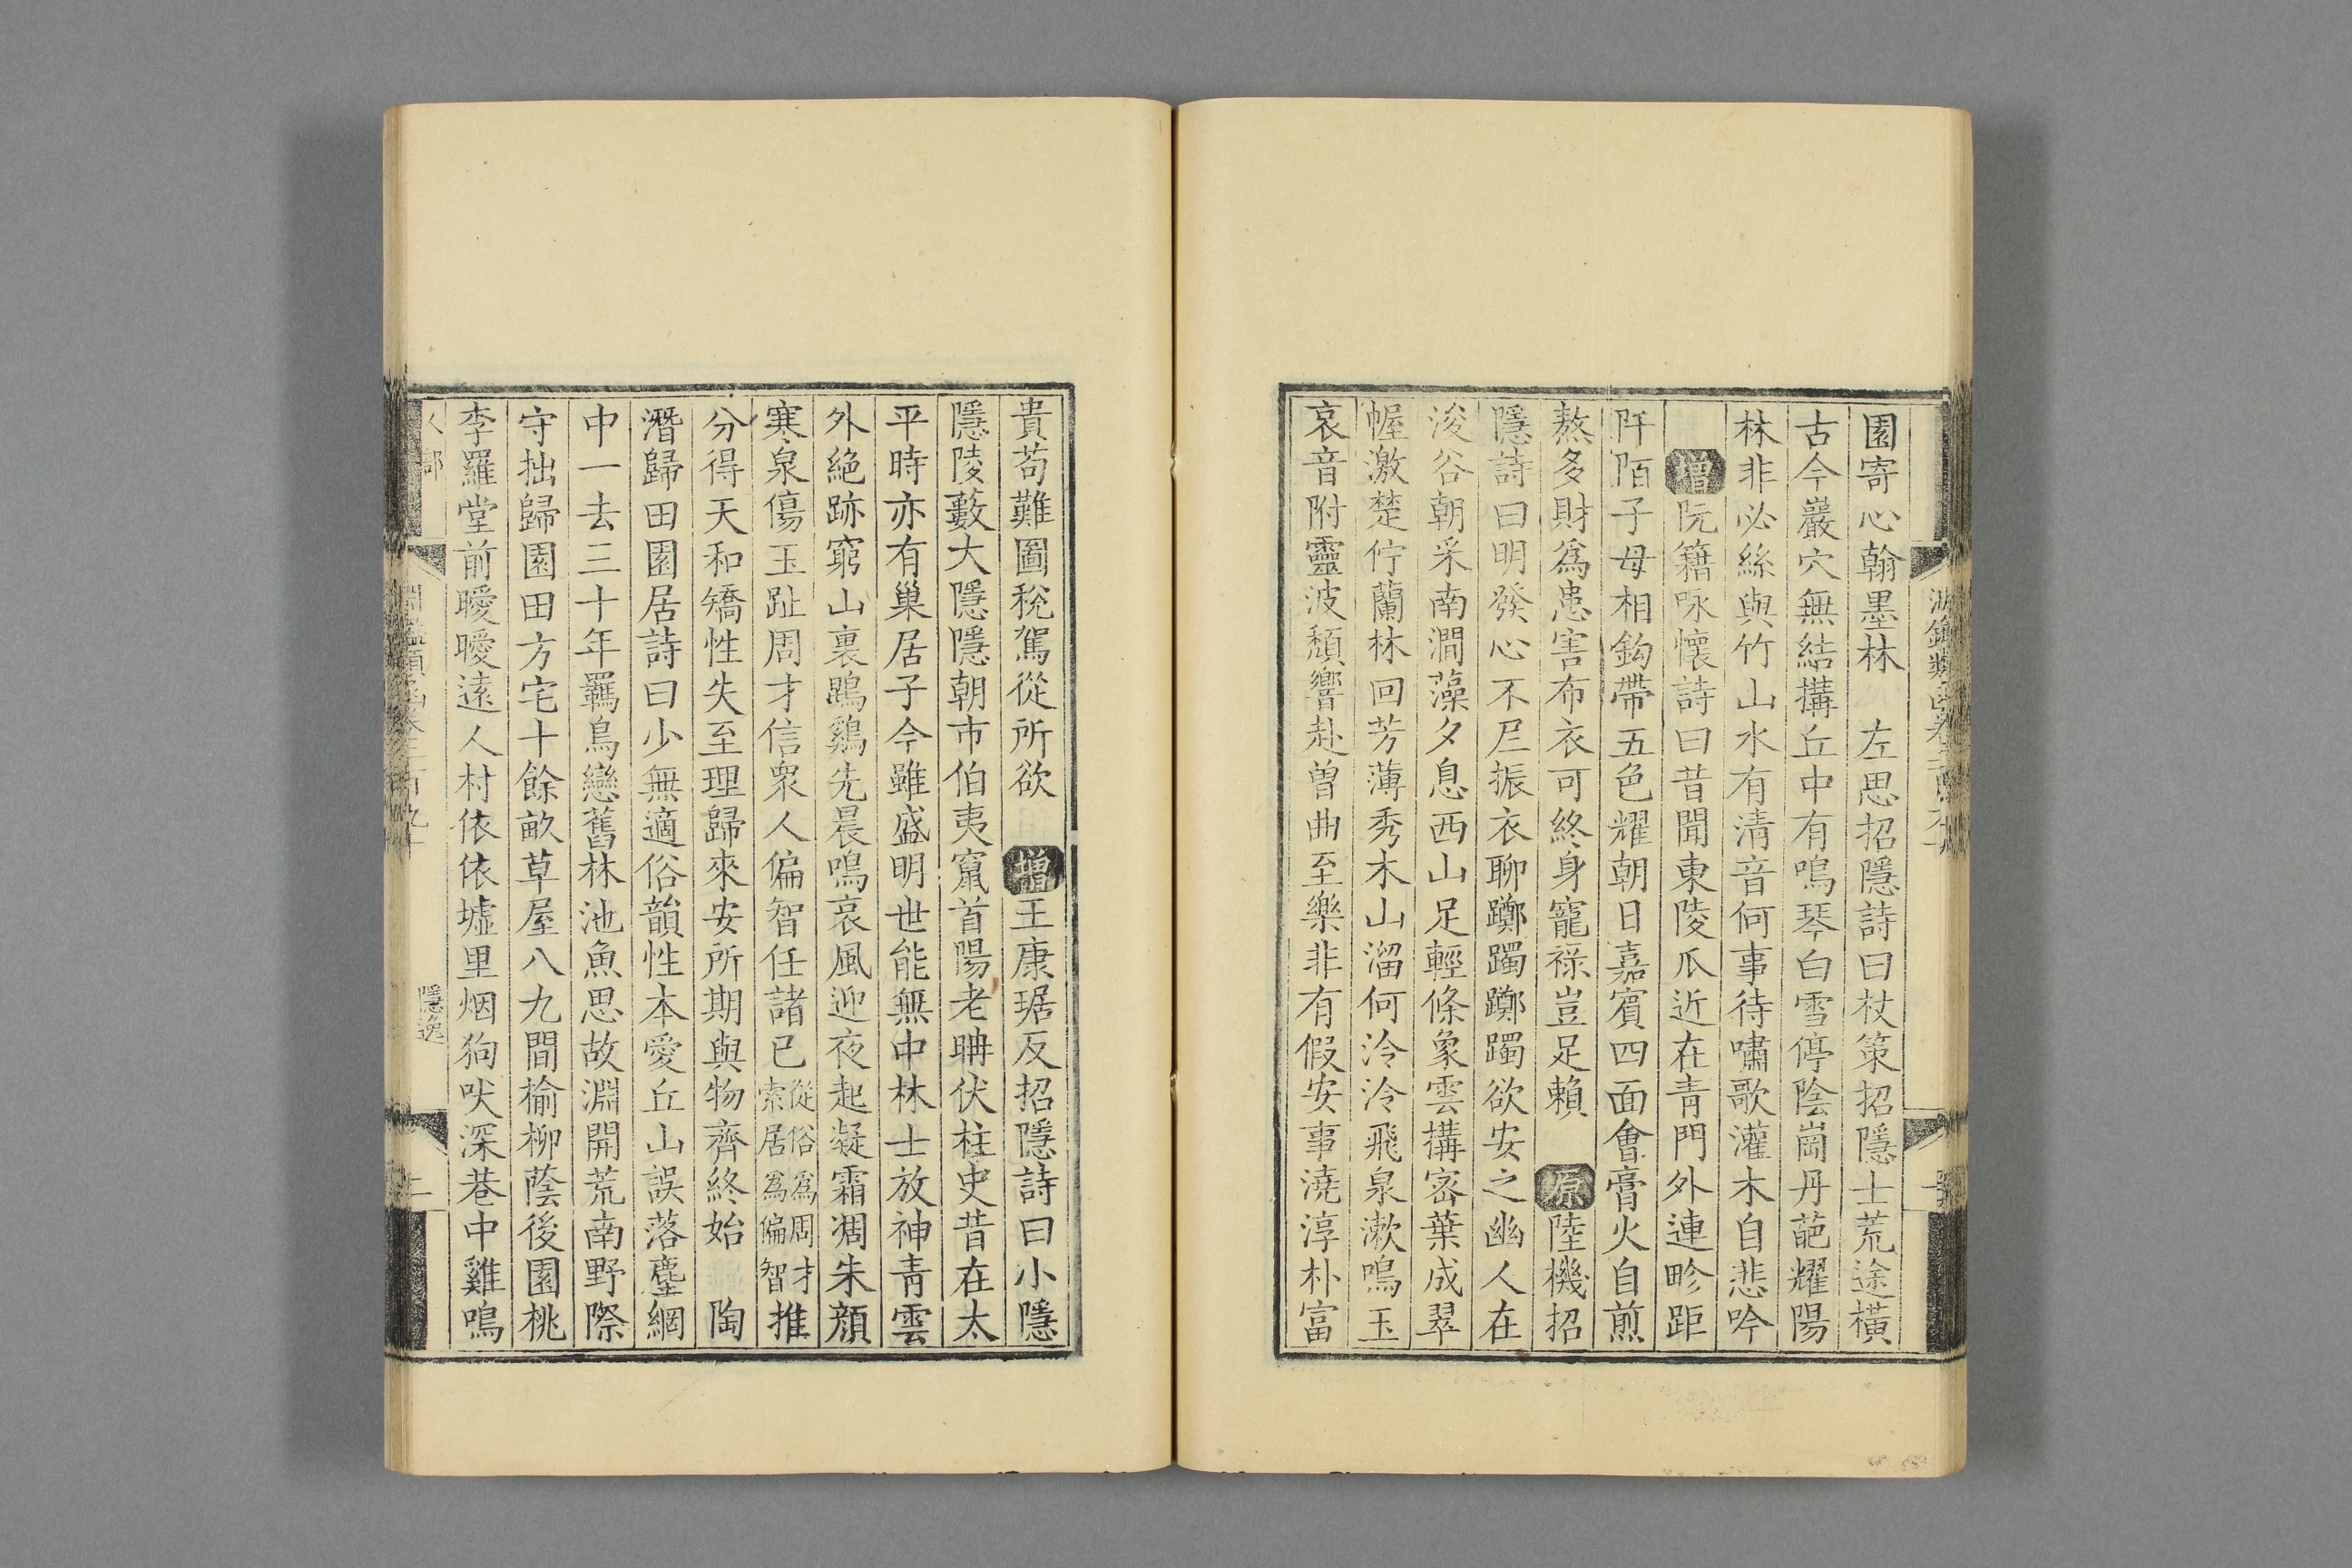 園寄心翰墨林　左思招隱詩曰杖策招隱士荒途橫
古今巖穴無結搆丘中有鳴琴白雪停陰崗丹葩耀陽
林非必絲與竹山水有清音何事待嘯歌灌木自悲吟
增阮籍咏懷詩曰昔聞東陵瓜近在青門外連畛距
阡陌子母相鈎帶五色耀朝日嘉賓四面會膏火自煎
熬多財爲患害布衣可終身寵祿豈足賴　原陸機招
隱詩曰明發心不𡰥振衣聊躑躅躑躅欲安之幽人在
浚谷朝采南澗藻夕息西山足輕條象雲搆宻葉成翠
幄激楚佇蘭林回芳薄秀木山溜何泠泠飛泉漱鳴玉
哀音附靈波頹響赴曾曲至樂非有假安事澆淳朴富
貴苟難圖稅駕從所欲　增王康琚反招隱詩曰小隱
隱陵藪大隱隱朝市伯夷竄首陽老聃伏柱史昔在太
平時亦有巢居子今雖盛明世能無中林士放神青雲
外絕跡窮山裏鵾鷄先晨鳴哀風迎夜起凝霜凋朱顏
寒泉傷玉趾周才信衆人偏智任諸已從俗爲周才索居爲偏智推
分得天和矯性失至理歸來安所期與物齊終始　陶
潛歸田園居詩曰少無適俗韻性本愛丘山誤落塵網
中一去三十年羈鳥戀舊林池魚思故淵開荒南野際
守拙歸園田方宅十餘畝草屋八九間榆柳蔭後園桃
李羅堂前曖曖遠人村依依墟里烟狗吠深巷中雞鳴
隱逸